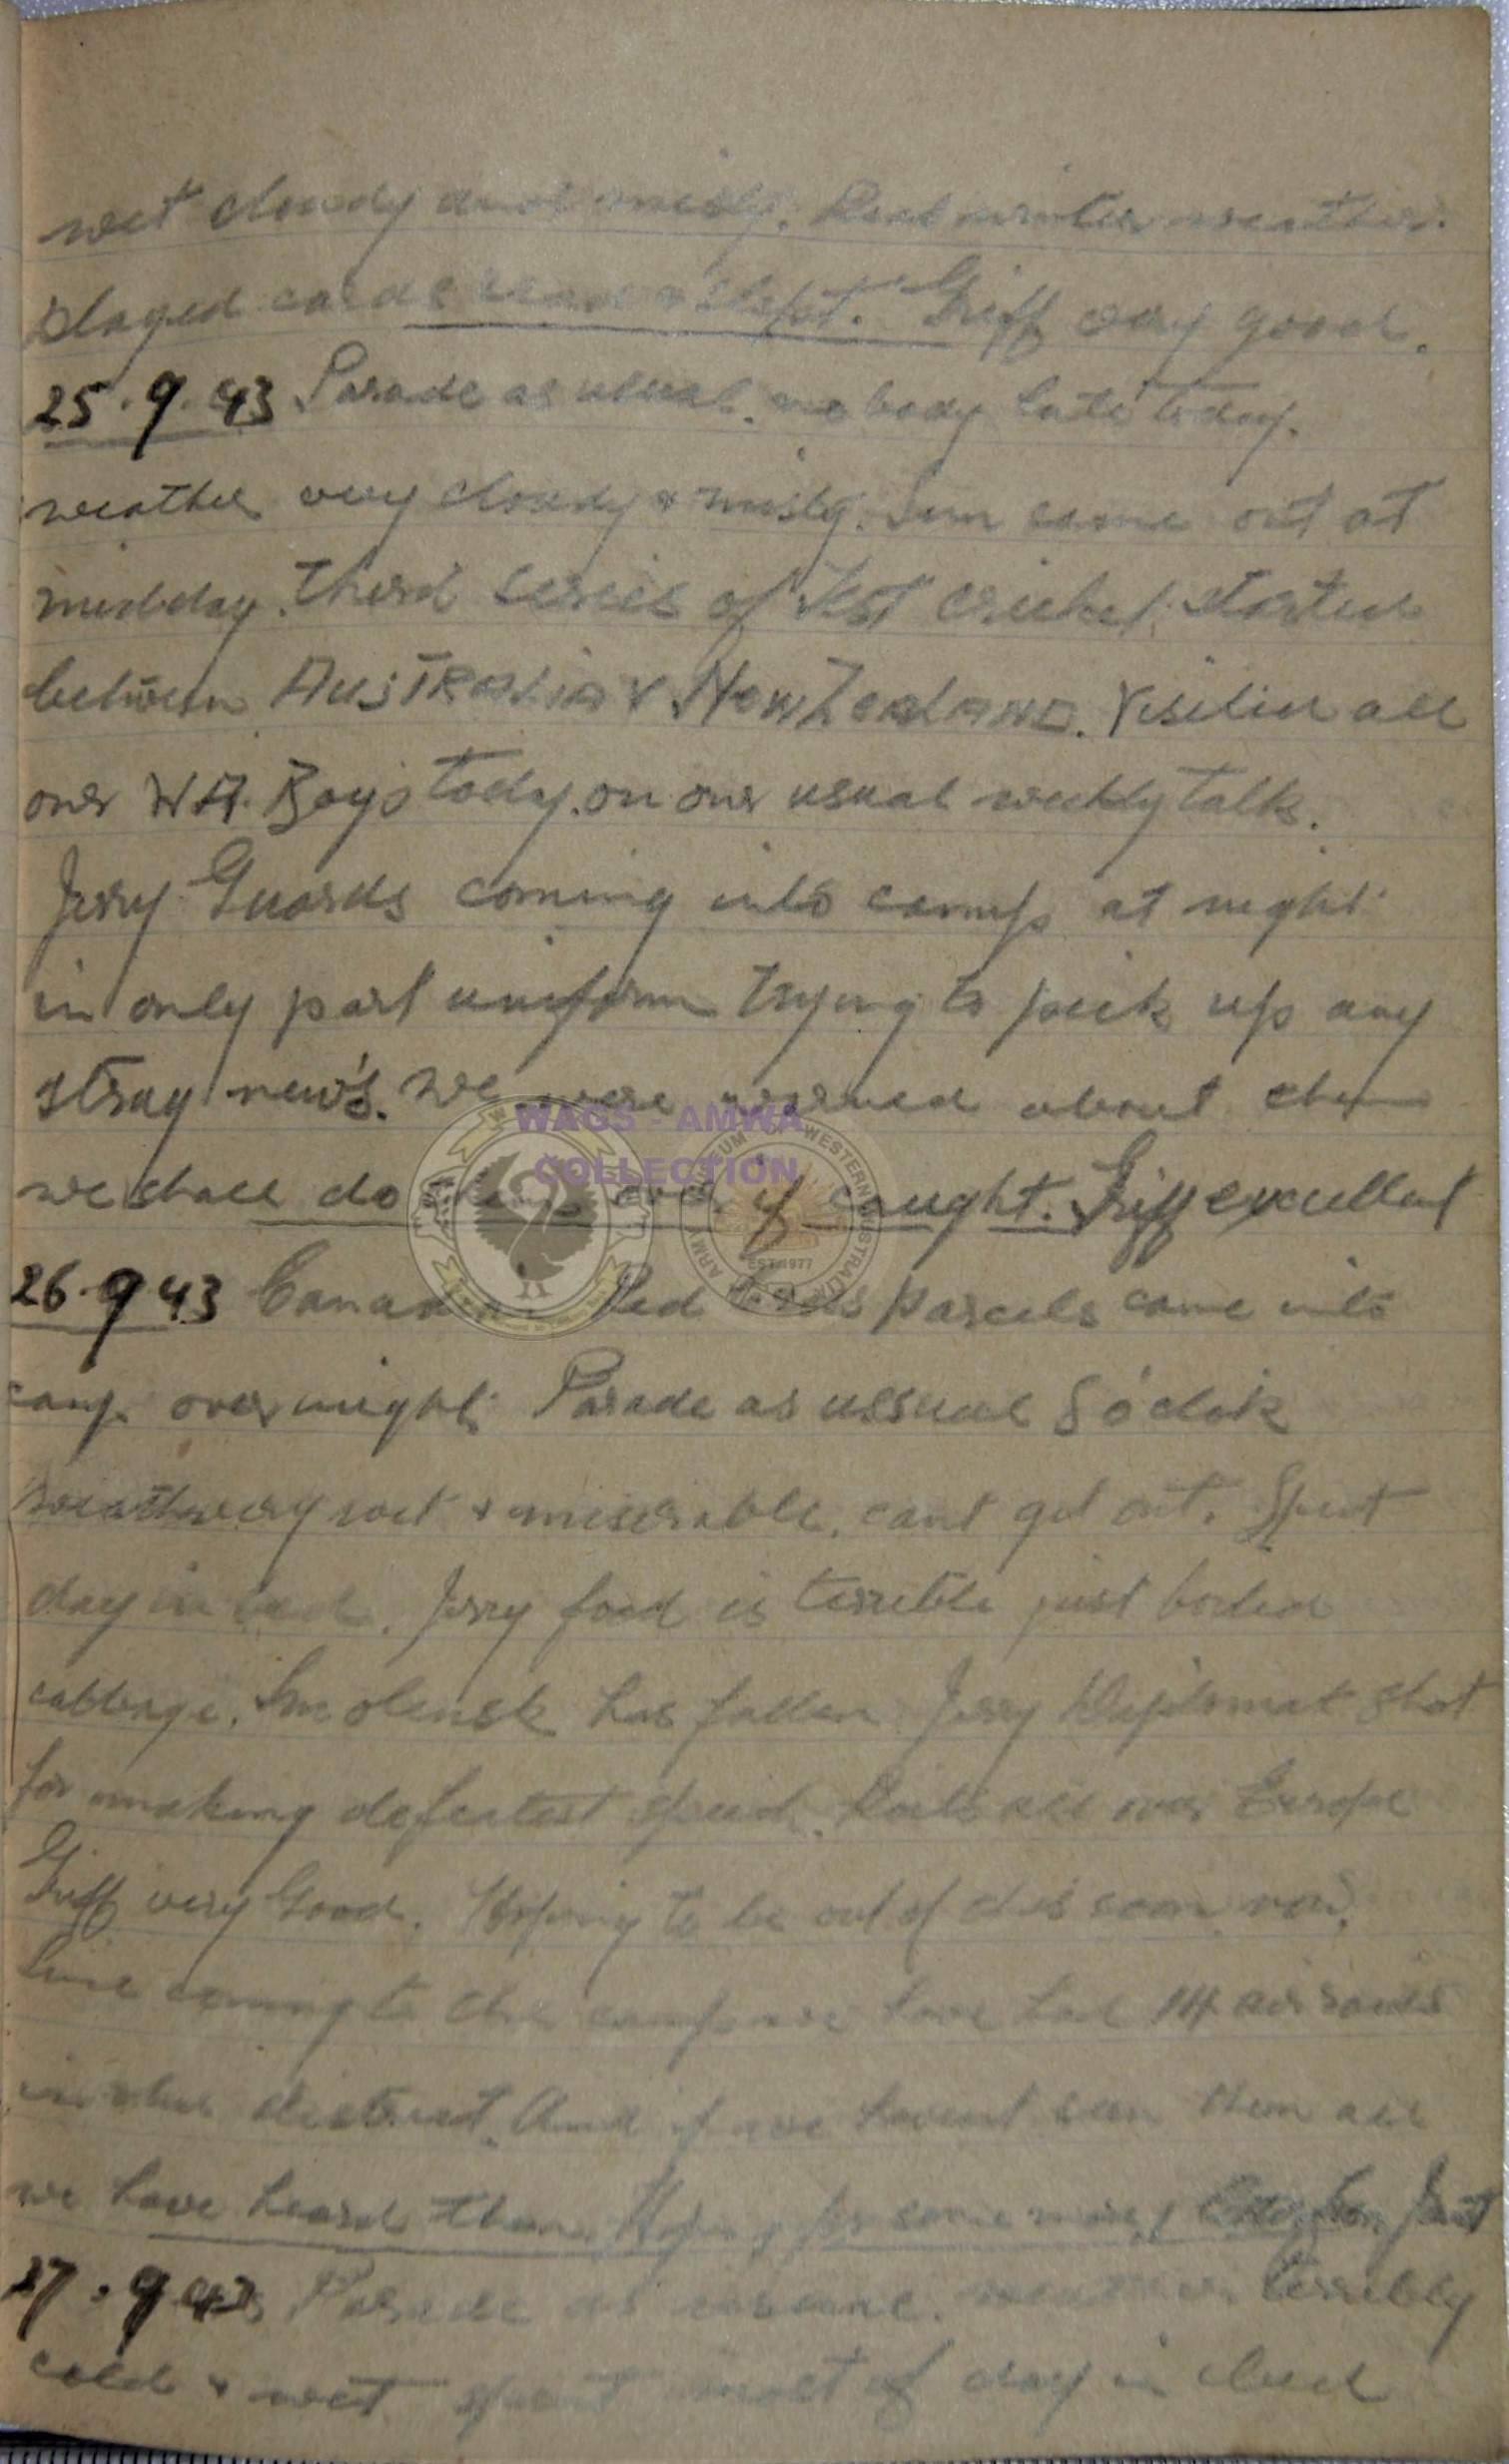 wet cloudy and misty. Real winter weather.
played cards read & slept. Griff very good.
25.9.43 Parade as usual. no body late today.
weather very cloudy & misty. Sun came out at
midday. Third series of Test cricket started
between AUSTRALIA V New Zealand. Visited all
our W.A. Boys today. on our usual weekly talk.
Jerry Guards coming into camp at night
in only part uniform trying to pick up any
stray news. We were warned about them
we shall do them over if caught. Griff excellent
26.9 43 Canadian Red Cross parcels came into
camp over night. Parade as ussual 8 o'clok
weather very wet & miserable. cant get out. Spent
day in bed. Jerry food is terrible just boiled
cabbage. Smolensk has fallen. Jerry Diplomat shot
for making defeatest speech. Raids all over Europe
Griff very Good. Hoping to be out of this soon now.
Since coming to this camp we have had 14 air raids
in this district. And if we havent seen them all
we have heard them. Hoping for some more
27.9.43 Parade as weather terribly
cold & wet spent most of day in bed
WAGS - AMWA
COLLECTION
ARMY MUSEUM OF WESTERN AUSTRALIA
EST 1977